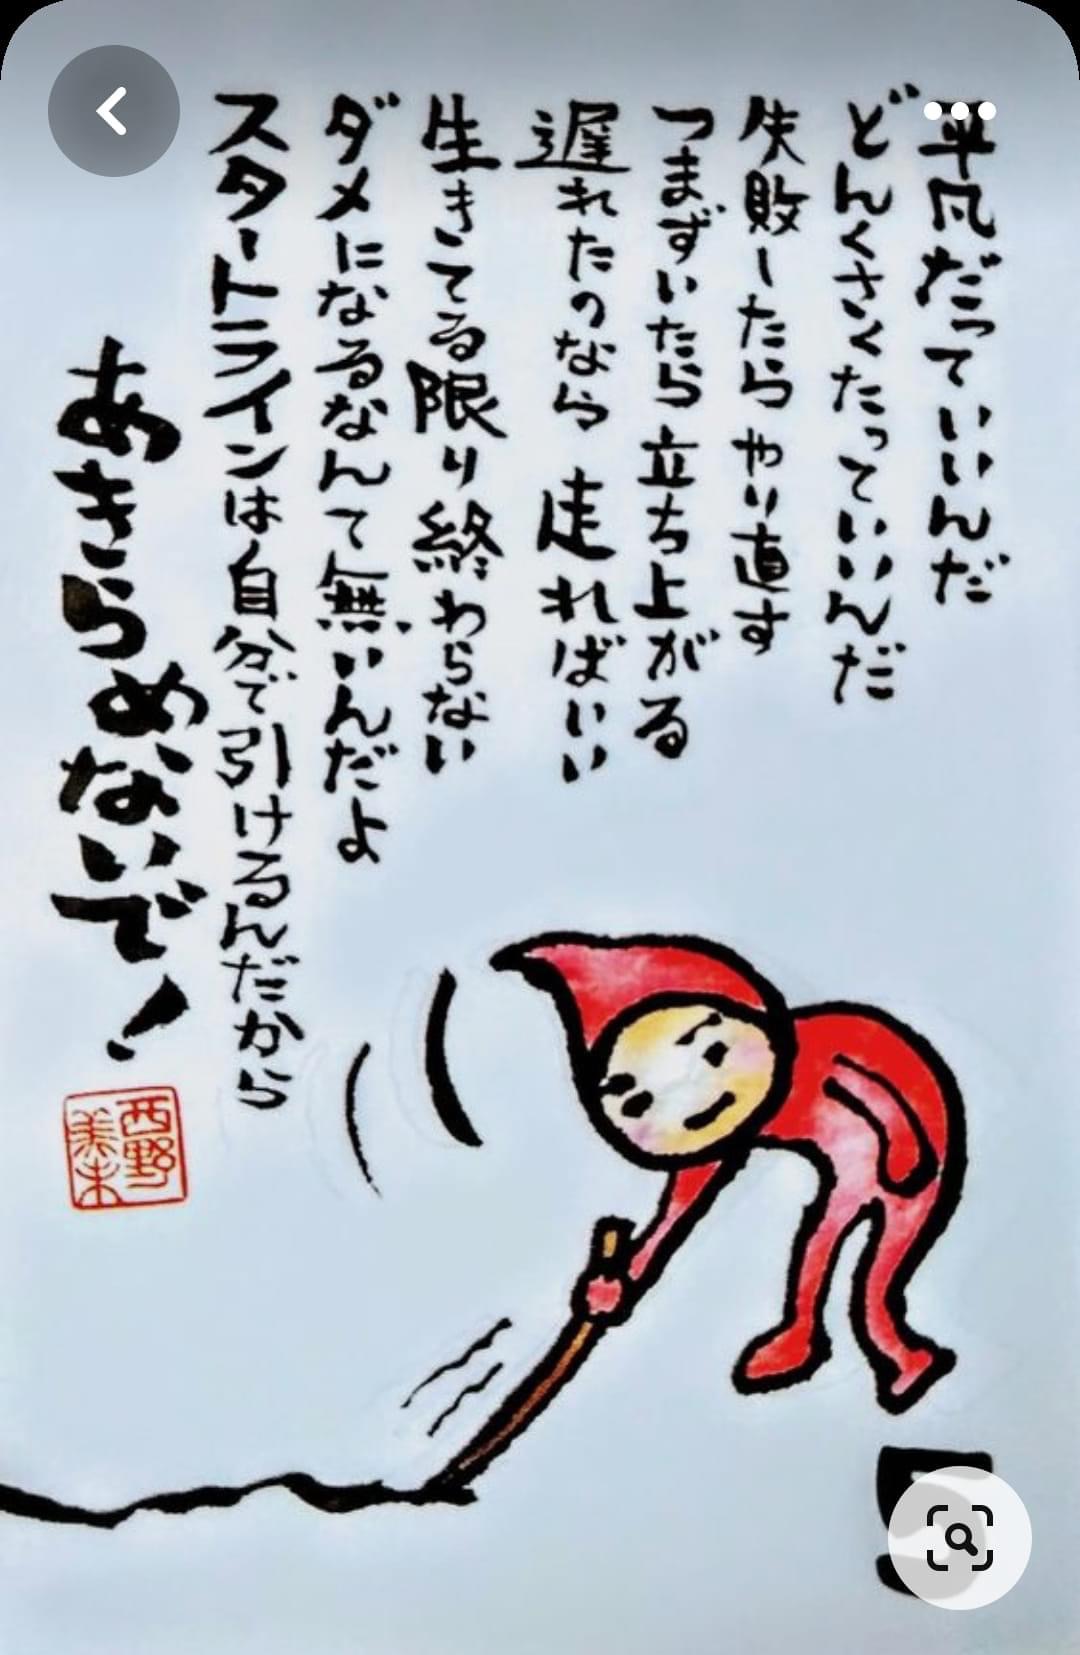 平凡だっていいんだ
どんくさくたっていいんだ
失敗したらやり直す
つまずいたら立ち上がる
遅れたのなら走ればいい
生きてる限り終わらない
ダメになるなんて無いんだよ
スタートラインは自分で引けるんだから
あきらめないで!
西野
美未